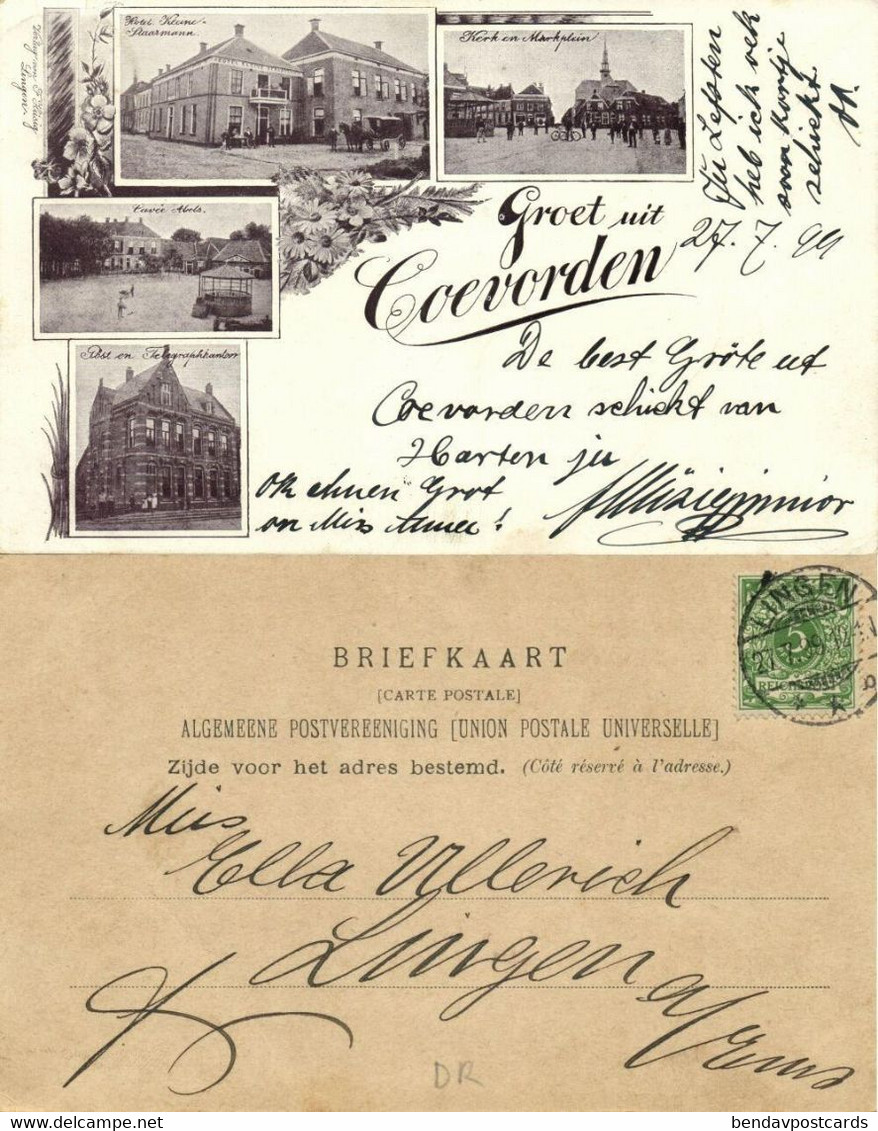 Hotel Kleine-
Staarmann.
Kerk en Marktplein
Cavée Abels.
Post en Telegraphkantoor
Groet uit
Coevorden
27. 7. 99
heb ich ock
schickt.
De best Gröte ut
Coevorden schickt van
Harten ju
ok einen Grot
on Miss
BRIEFKAART
[CARTE POSTALE]
ALGEMEENE POSTVEREENIGING [UNION POSTALE UNIVERSELLE]
Zijde voor het adres bestemd. (Côté réservé à l'adresse.)
LINGEN
27.7.99
5
REICHSPOST
Miss
Ella Ullerich
Lingen
a/Ems
DR
delcampe.net
bendavpostcards